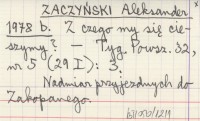 ZACZYŃSKI Aleksander
1978 b. Z czego my się cie-
szymy? — Tyg. Powsz. 32,
nr 5 (29 I): 3.
Nadmiar przyjezdnych do
Zakopanego.